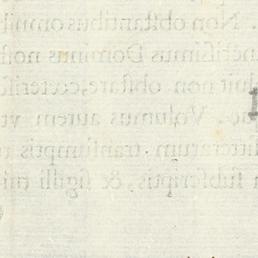 . Non obstantibus omnib
Dominus nost
uit non obstare, cœteris
Volumus autem vt
litterarum transumptis
subscriptis, & sigilli